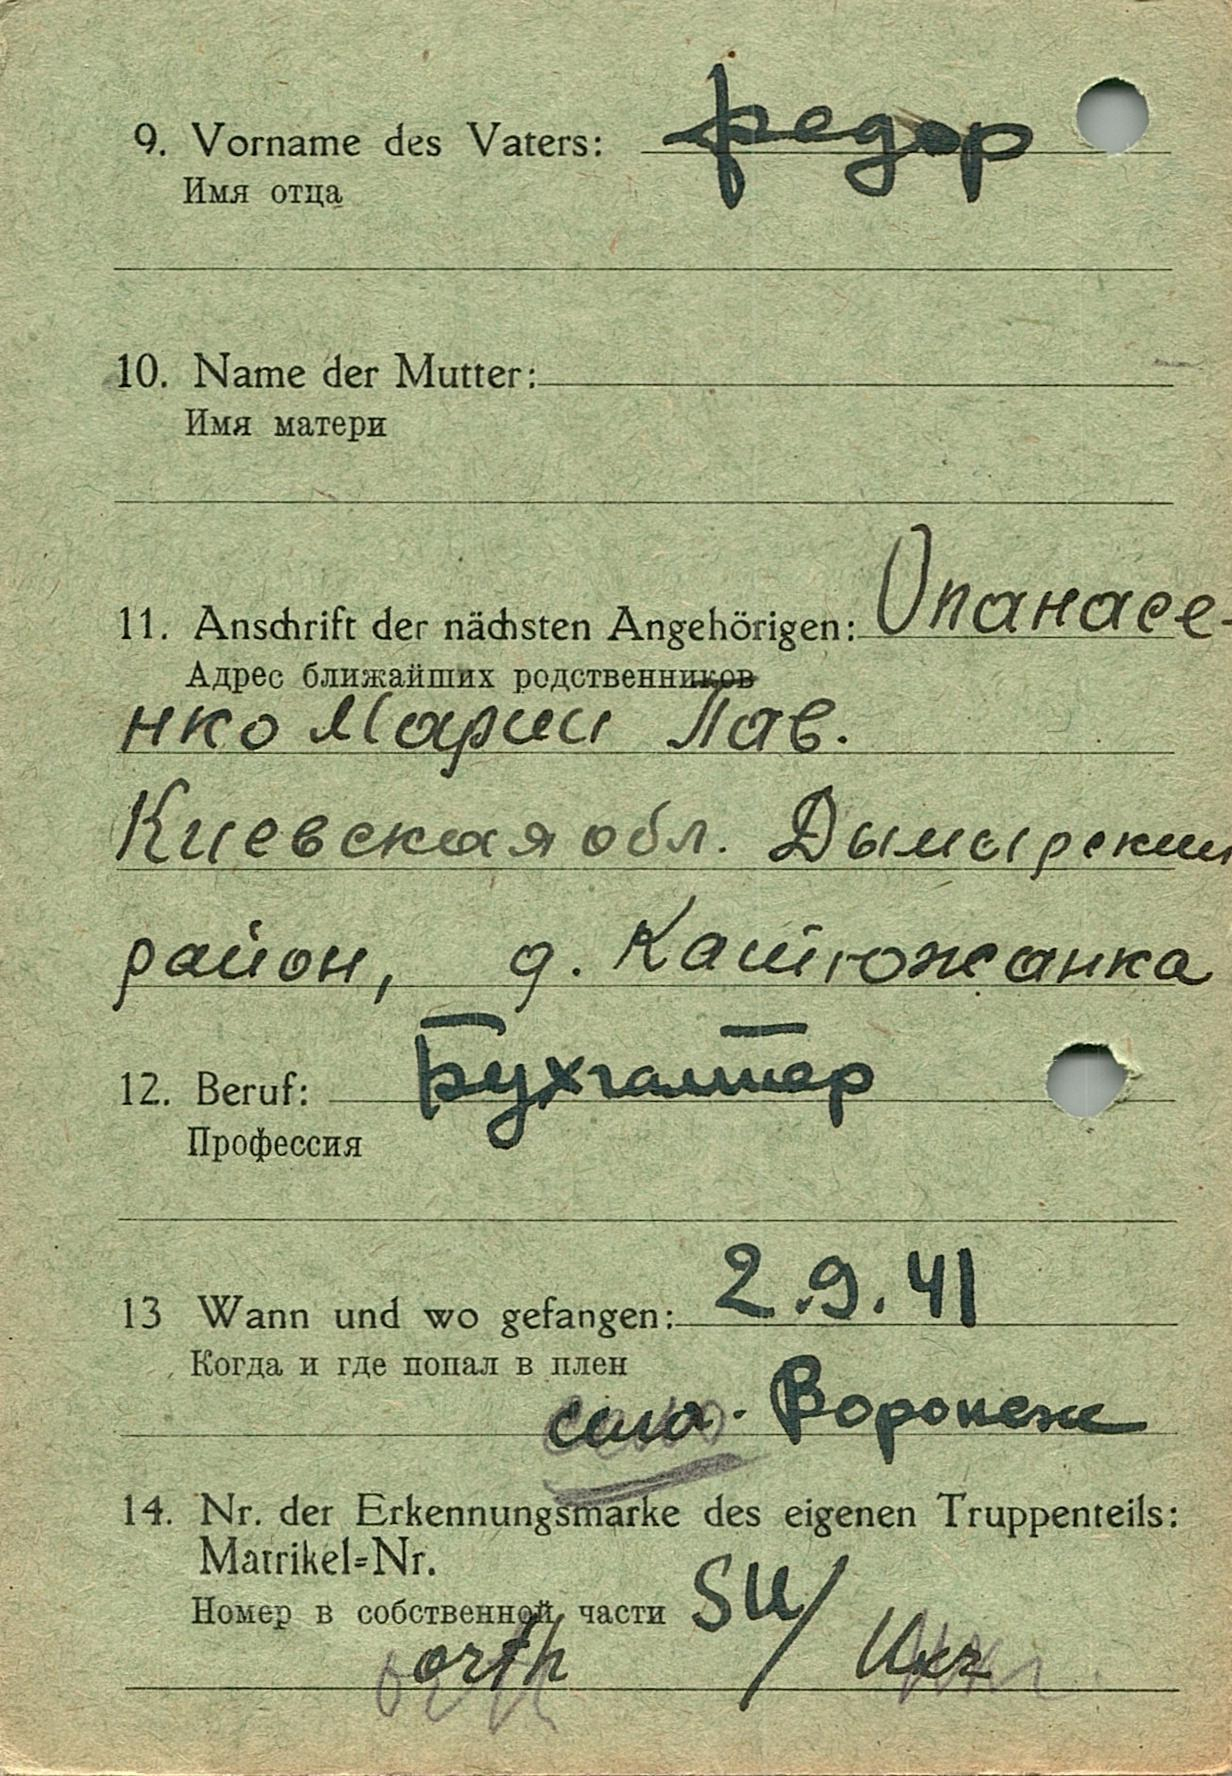 9. Vorname des Vaters: Федор
Имя отца
10. Name der Mutter:
Имя матери
11. Anschrift der nächsten Angehörigen: Опанасе-
Адрес ближайших родственников
нко Марии Пав.
Киевская обл. Дымырский
район, д. Катюжанка
12. Beruf: Бухгалтер
Профессия
13 Wann und wo gefangen: 2.9.41
Когда и где попал в плен
Воронеж
14. Nr. der Erkennungsmarke des eigenen Truppenteils:
Matrikel=Nr.
Номер в собственной части SU/
orth Ukr